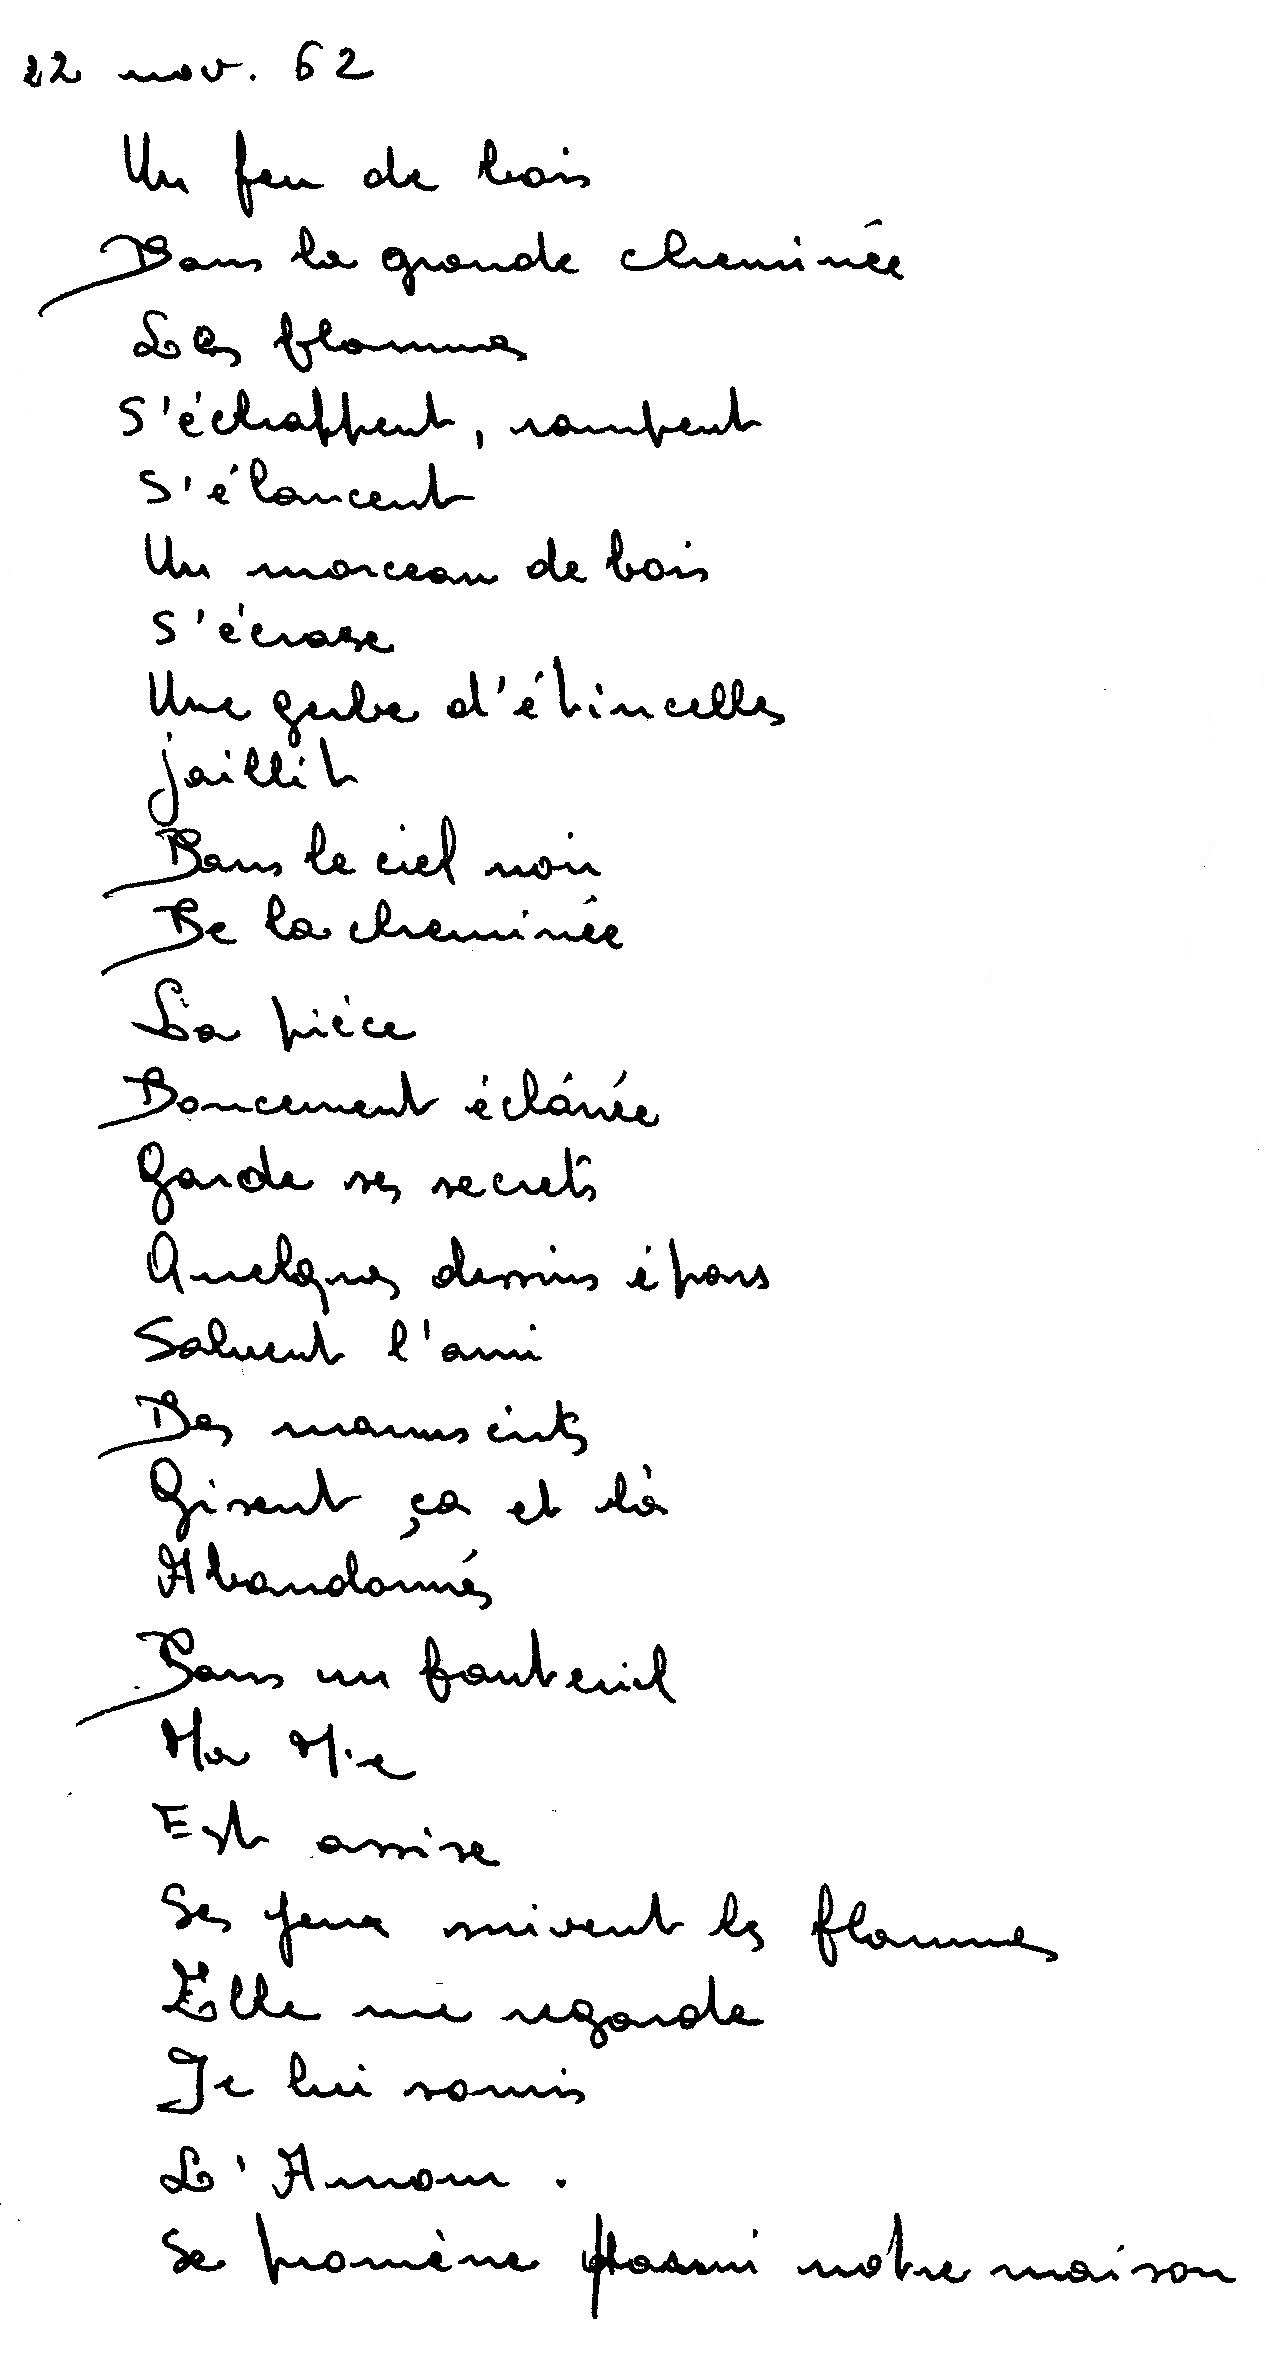 22 nov. 62
Un feu de bois
Dans la grande cheminée
Les flammes
S'échappent, rampent
S'élancent
Un morceau de bois
S'écrase
Une gerbe d'étincelles
jaillit
Dans le ciel noir
De la cheminée
La pièce
Doucement éclairée
Garde ses secrets
Quelques dessins épars
Saluent l'ami
Des manuscrits
Gisent ça et là
Abandonnés
Dans un fauteuil
Ma Mie
Est assise
Ses yeux suivent les flammes
Elle me regarde
Je lui souris
L'Amour .
Se promène parmi notre maison